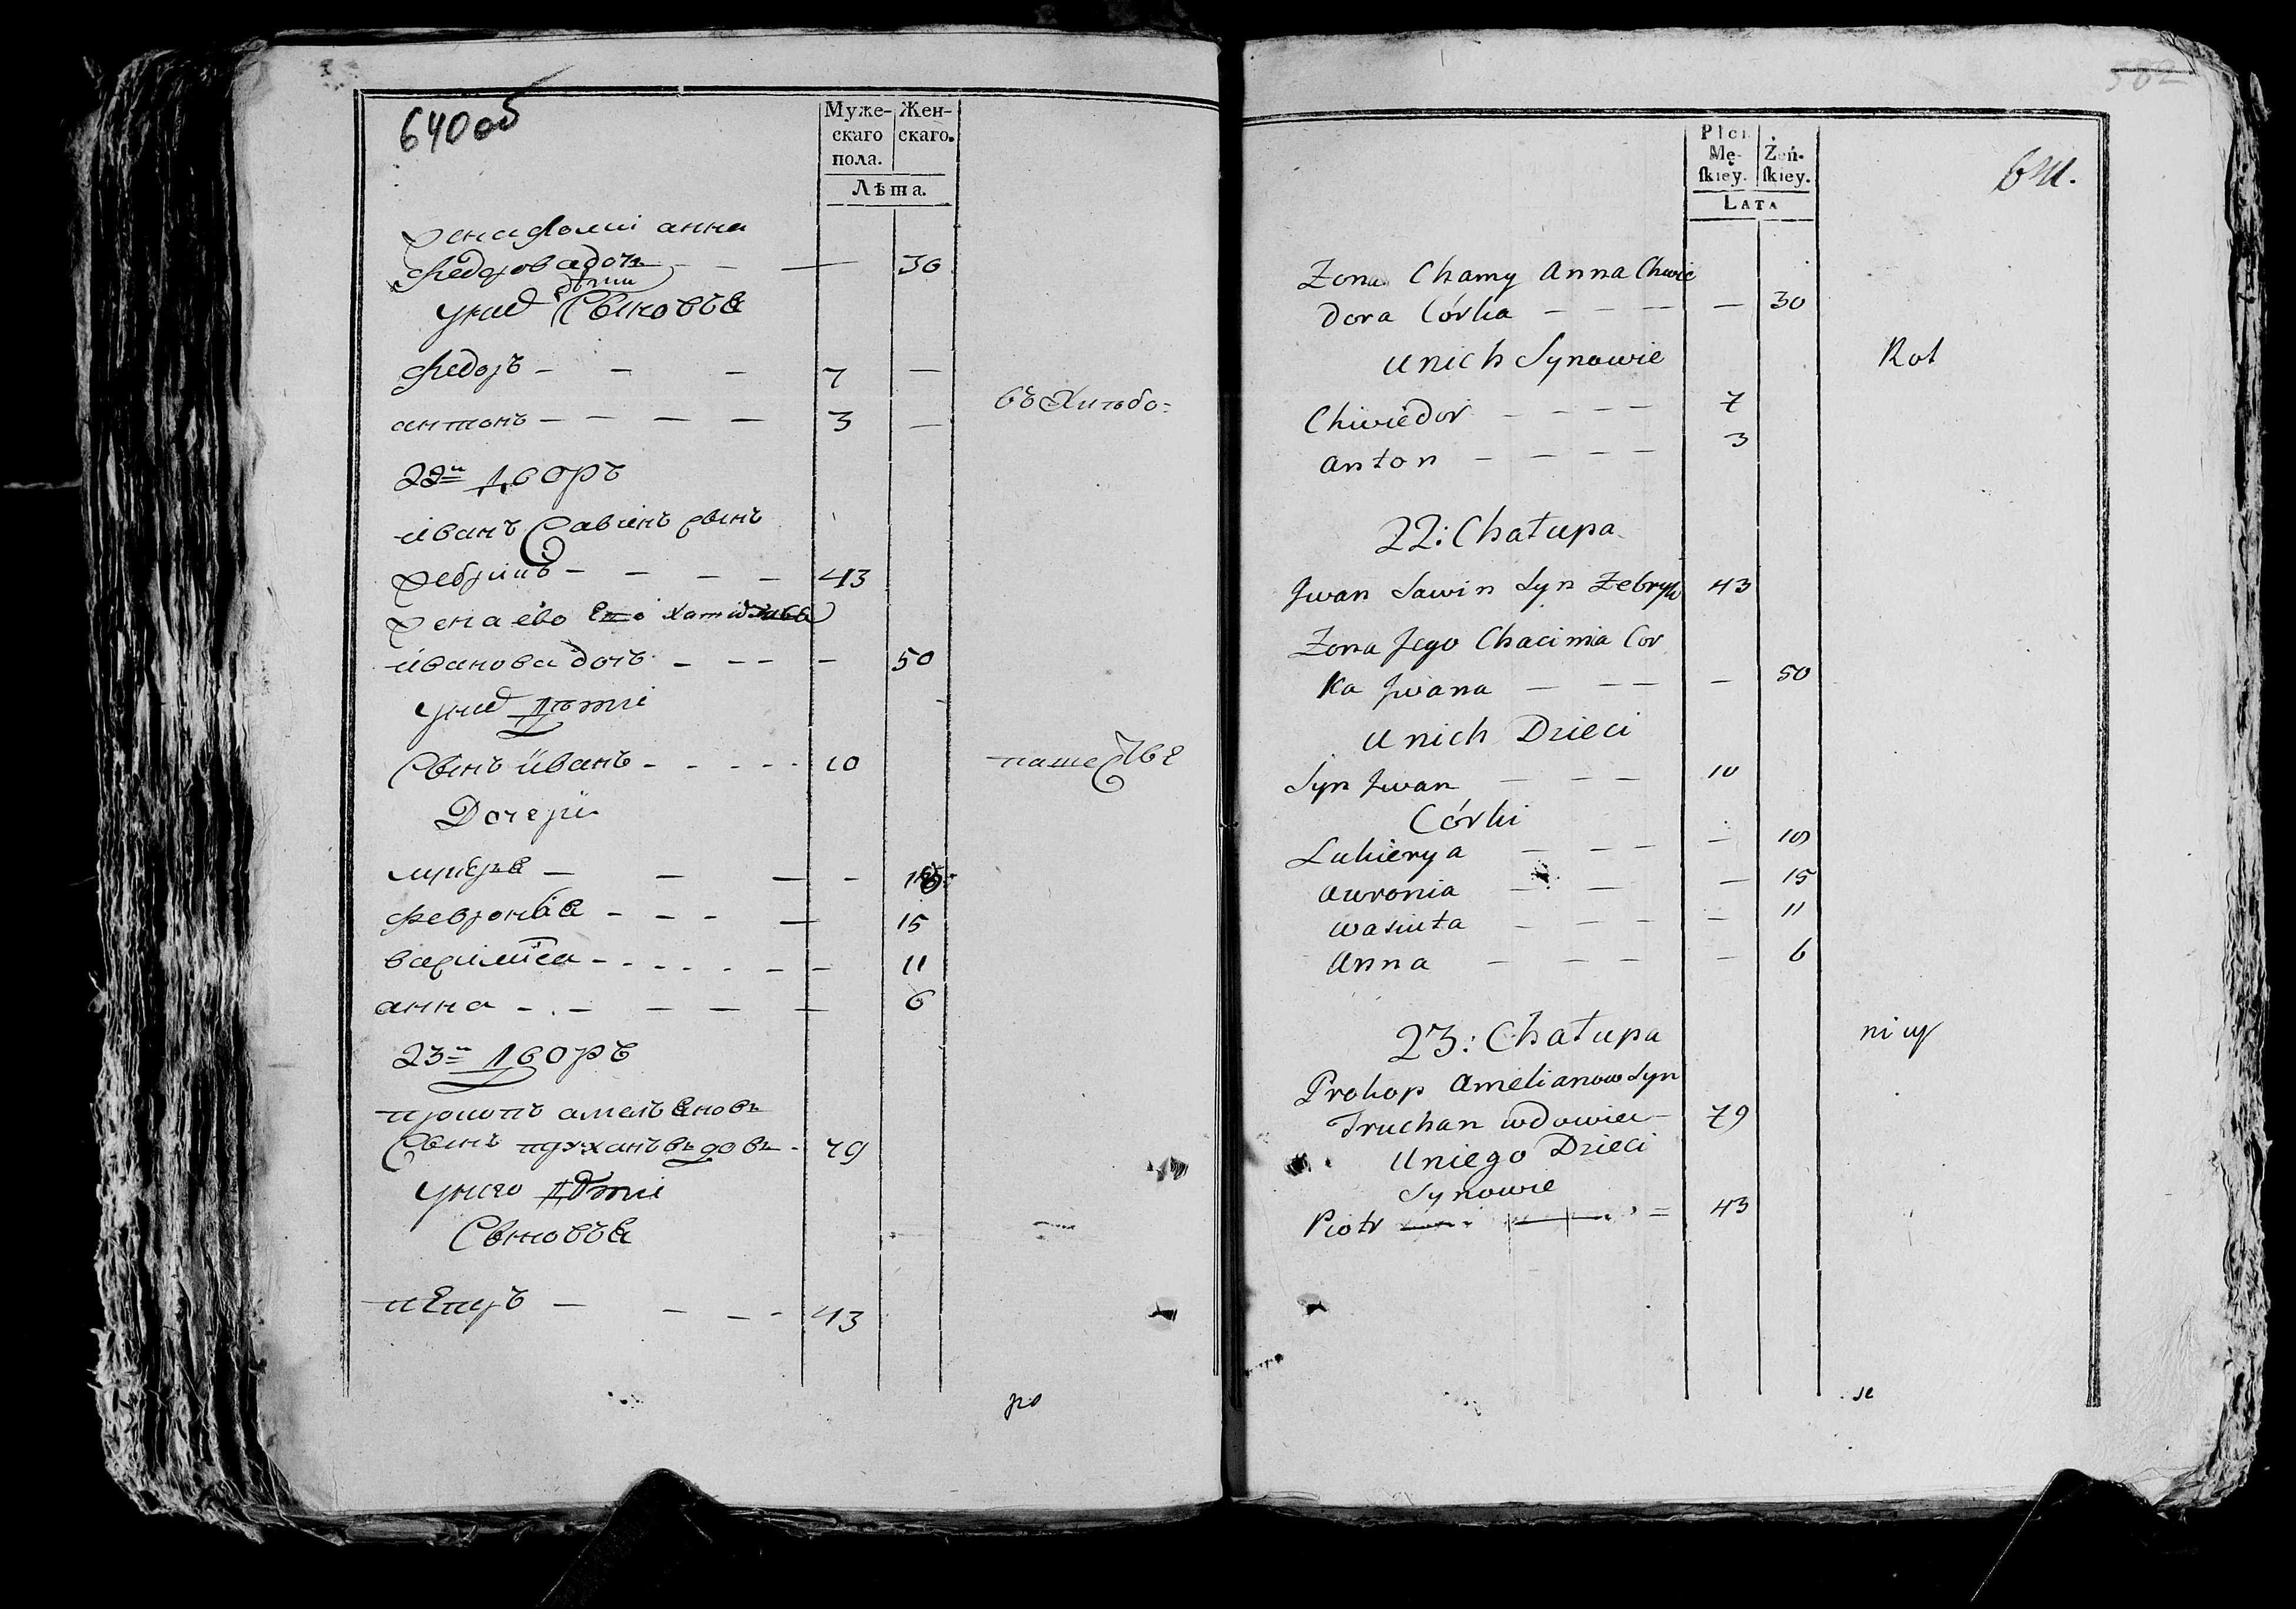 640 об
Муже-
скаго
пола.
Жен-
скаго.
Лѣта.
жена хомы анна
федорова дочь - - - 30
у них дѣти
сыновья
федоръ - - - 7 -
въ хлѣбо=
антонъ - - - - 3 -
22й дворъ
иванъ савинъ сынъ
жебрикъ - - - - 43
жена ево
иванова дочь - - - - 50
у них дѣти
сынъ иванъ - - - - - 10
пашестве
дочери
15
февронья - - - - 15
11
анна - - - - - 6
23й дворъ
прокопъ амельяновъ
сынъ труханъ вдовъ - 79
у него дѣти
сыновья
петръ - - - - 43
ро
582
641.
Płci
Mę-
ſkiey.
Żeń-
ſkiey.
LATA
Zona Chamy Anna Chwie
dora Córka - - - - - 30
unich Synowie
Rol
Chwiedor - - - - 7
Anton - - - - 3
22: Chałupa
Jwan Sawin Syn Zebryk 43
Zona Jego Chacimia Cor
Ka Jwana - - - - 50
unich Dzieci
Syn Jwan - - - 10
Córki
Lukierya - - - -
Awronia - - - 15
Wasiuta - - - - 11
Anna - - - - 6
23: Chałupa
nicy
Prokop Amelianow Syn
Truchan wdowiec - 79
Uniego Dzieci
Synowie
Piotr - - - = 43
se